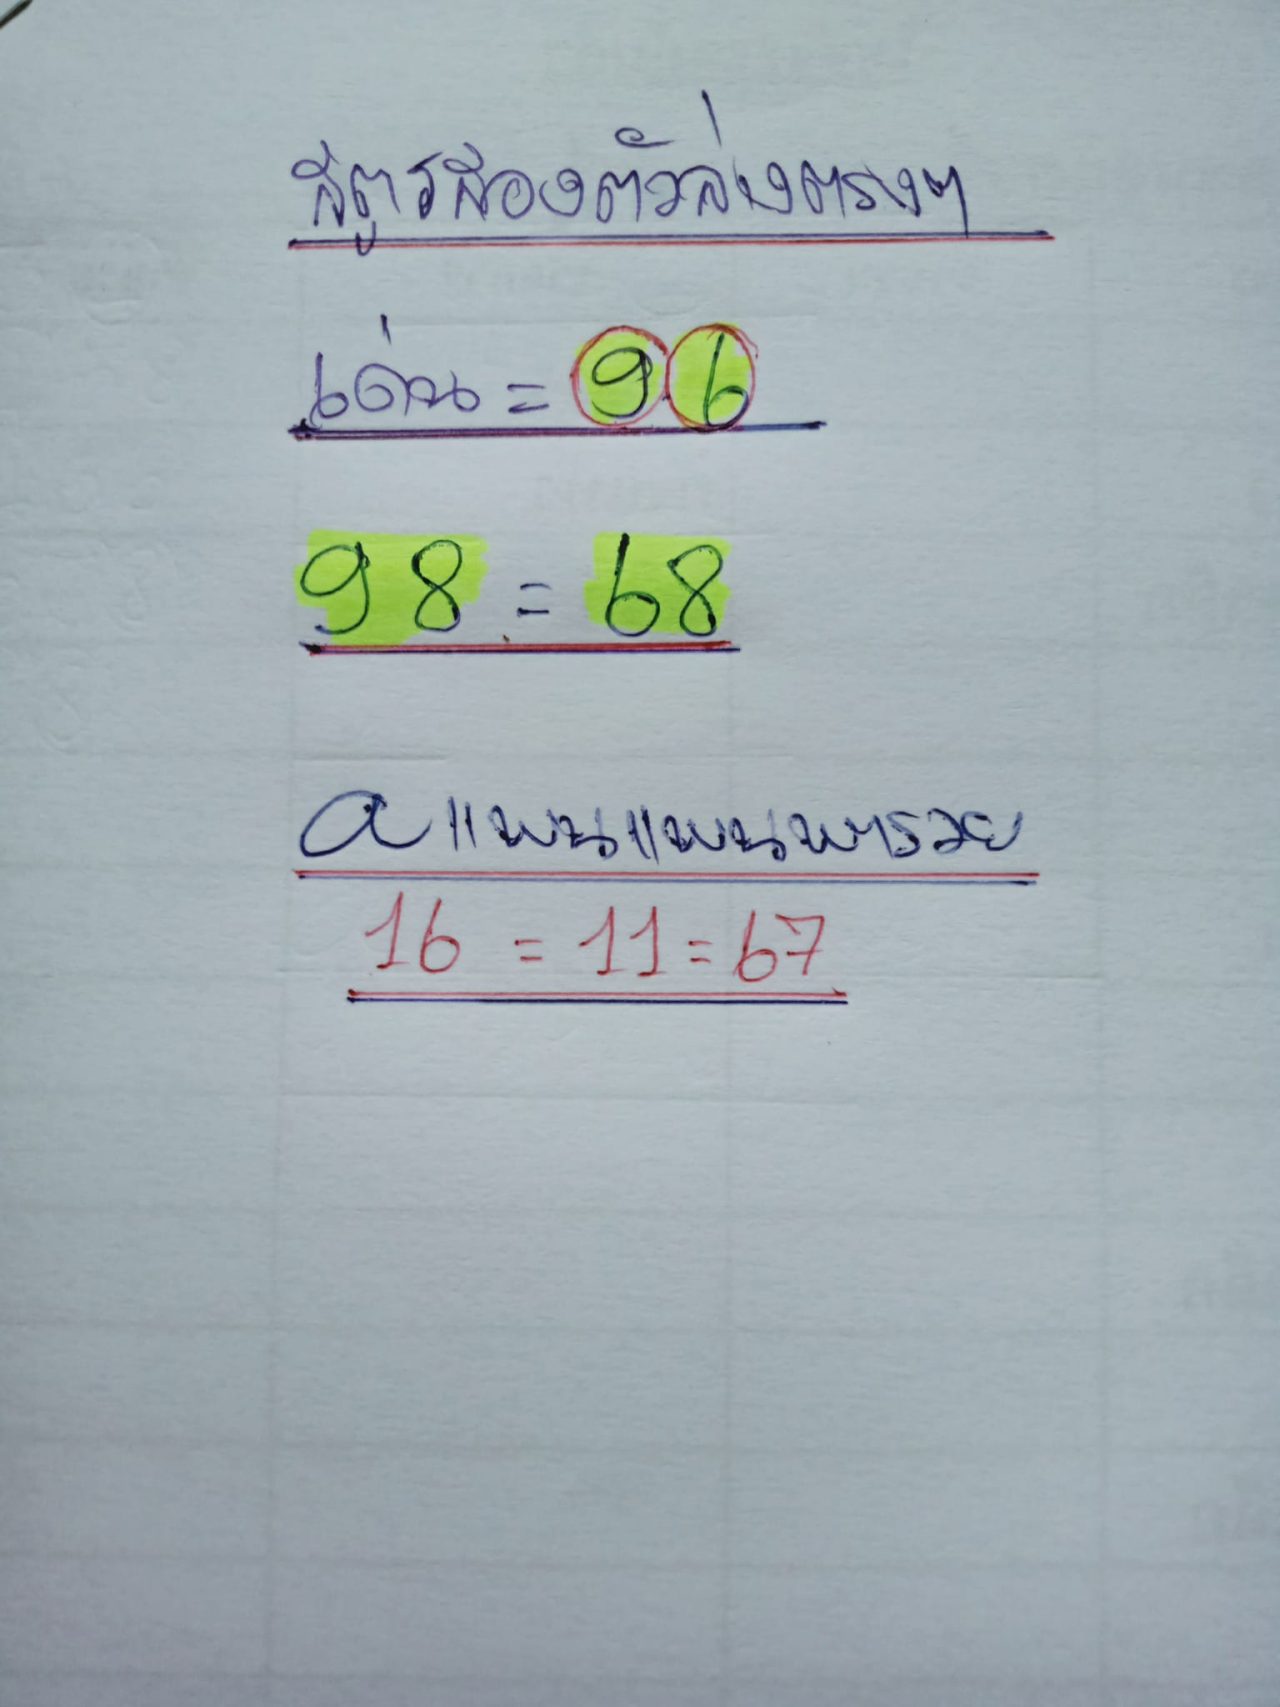 สูตรสองตัวล่างตรงๆ
เด่น = 96
98 = 68
aแพนแพนพารวย
16 = 11 = 67